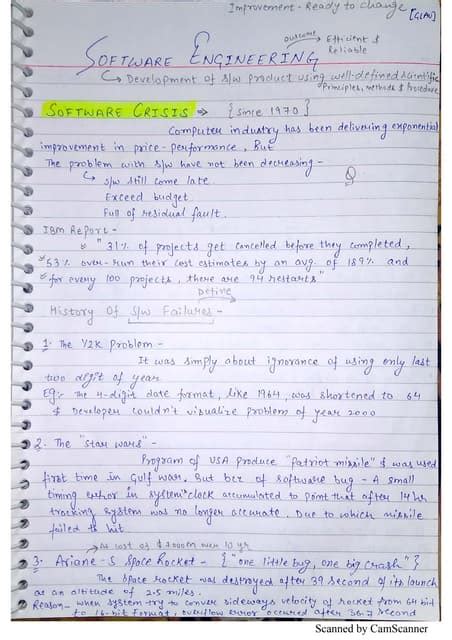 Improvement - Ready to change
[GLAU]
outcome → Efficient &
Reliable
SOFTWARE ENGINEERING
↳ Development of S/w product using well-defined scientific
Principles, methods & Procedure
SOFTWARE CRISIS ⇒ {Since 1970}
Computer industry has been delivering exponential
improvement in price-performance, But
The problem with S/w have not been decreasing -
↳ S/w still come late.
Exceed budget.
Full of residual fault.
IBM Report -
" 31% of projects get cancelled before they completed,
53% over-run their cost estimates by an avg. of 189% and
for every 100 projects, there are 94 restarts"
Define
History Of S/w Failures -
1. The Y2K Problem -
It was simply about ignorance of using only last
two digit of year
Eg:- The 4-digit date format, like 1964, was shortened to 64
& Developer couldn't visualize problem of year 2000
2. The "Star wars" -
Program of USA produce "Patriot missile" & was used
first time in Gulf war. But bcz of software bug - A small
timing error in system clock accumulated to point that after 14 hr
tracking system was no longer accurate. Due to which missile
failed to hit.
→ At cost of $7000m over 10 yr
3. Ariane-5 Space Rocket - {"one little bug, one big crash"}
The space rocket was destroyed after 39 second of its launch
as an altitude of 2.5 miles.
Reason - when system try to conver sideways velocity of rocket from 64 bit
to 16-bit format, overflow error occured after 36.7 second
Scanned by CamScanner